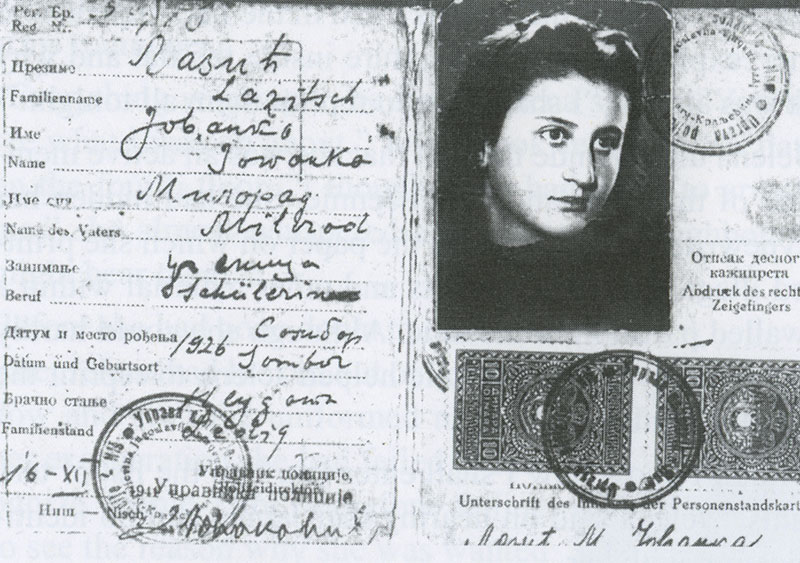 Рег. Бр.
Reg. Nr.
Презиме Лазић
Familienname Lazitsch
Име Јованка
Name Jowanka
Име оца Милорад
Name des Vaters Milorad
Занимање ученица
Beruf Schülerin
Датум и место рођења 1926 Сомбор
Datum und Geburtsort Sombor
Брачно стање
Familienstand ledig
16-XII
Управник полиције,
1941 Управника полиције
Ниш – Nisch
Отисак десног
кажипрста
Abdruck des recht
Zeigefingers
10
Unterschrift des der Personenstandskarte
Лазић М. Јованка